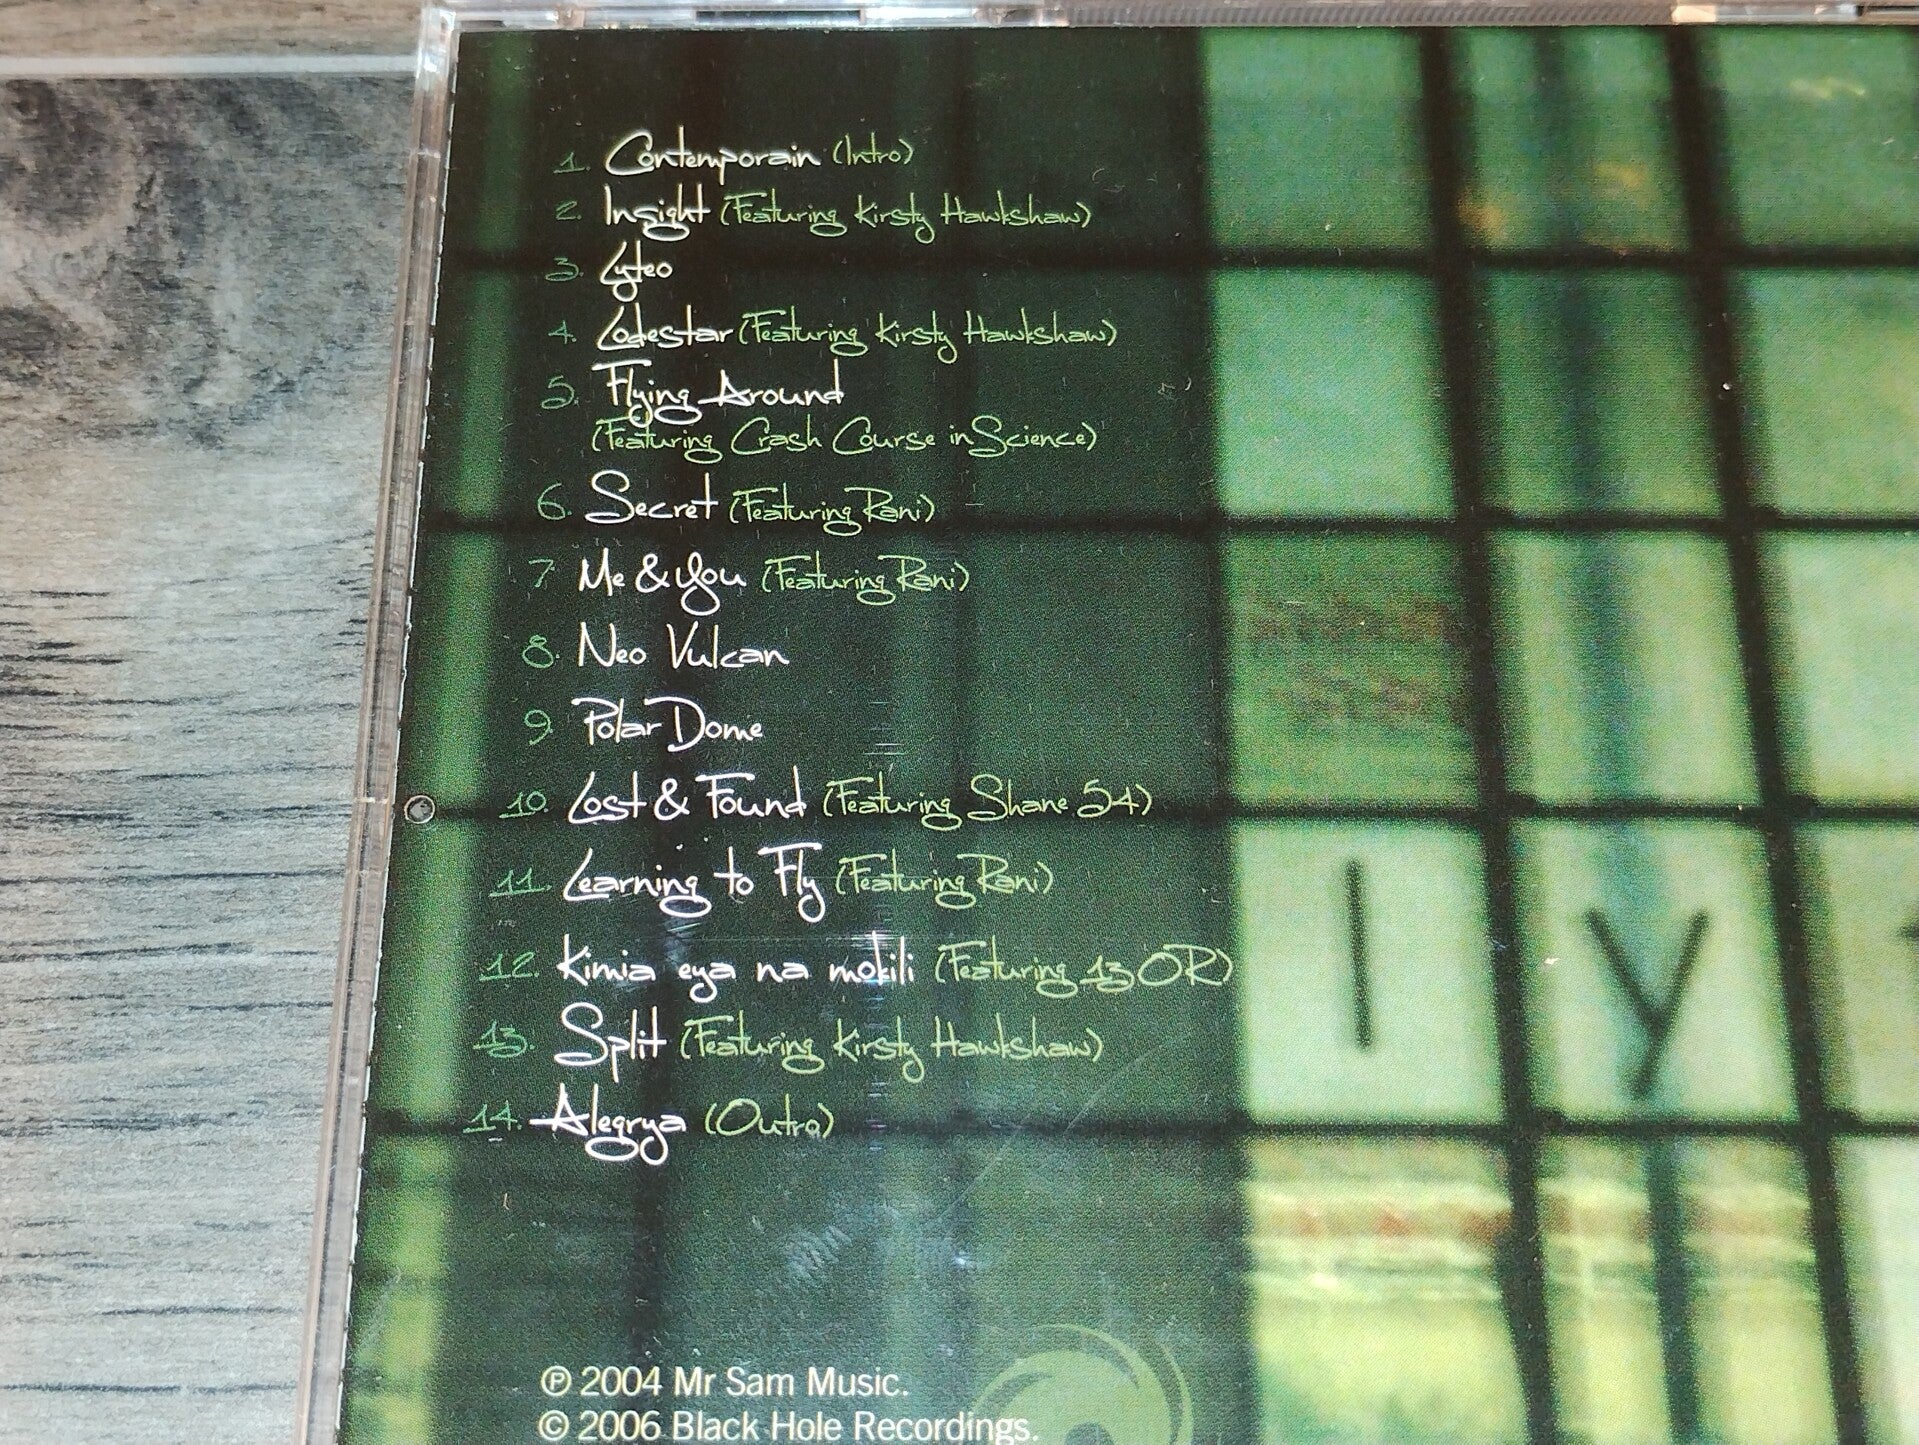 1. Contemporain (Intro)
2. Insight (Featuring Kirsty Hawkshaw)
3. Lyteo
4. Lodestar (Featuring Kirsty Hawkshaw)
5. Flying Around
(Featuring Crash Course in Science)
6. Secret (Featuring Rani)
7 Me & You (Featuring Rani)
8. Neo Vulcan
9. Polar Dome
10. Lost & Found (Featuring Shane 54)
11. Learning to Fly (Featuring Rani)
12. Kimia eya na mokili (Featuring 13OR)
13. Split (Featuring Kirsty Hawkshaw)
14. Alegrya (Outro)
ly
℗ 2004 Mr Sam Music.
© 2006 Black Hole Recordings.